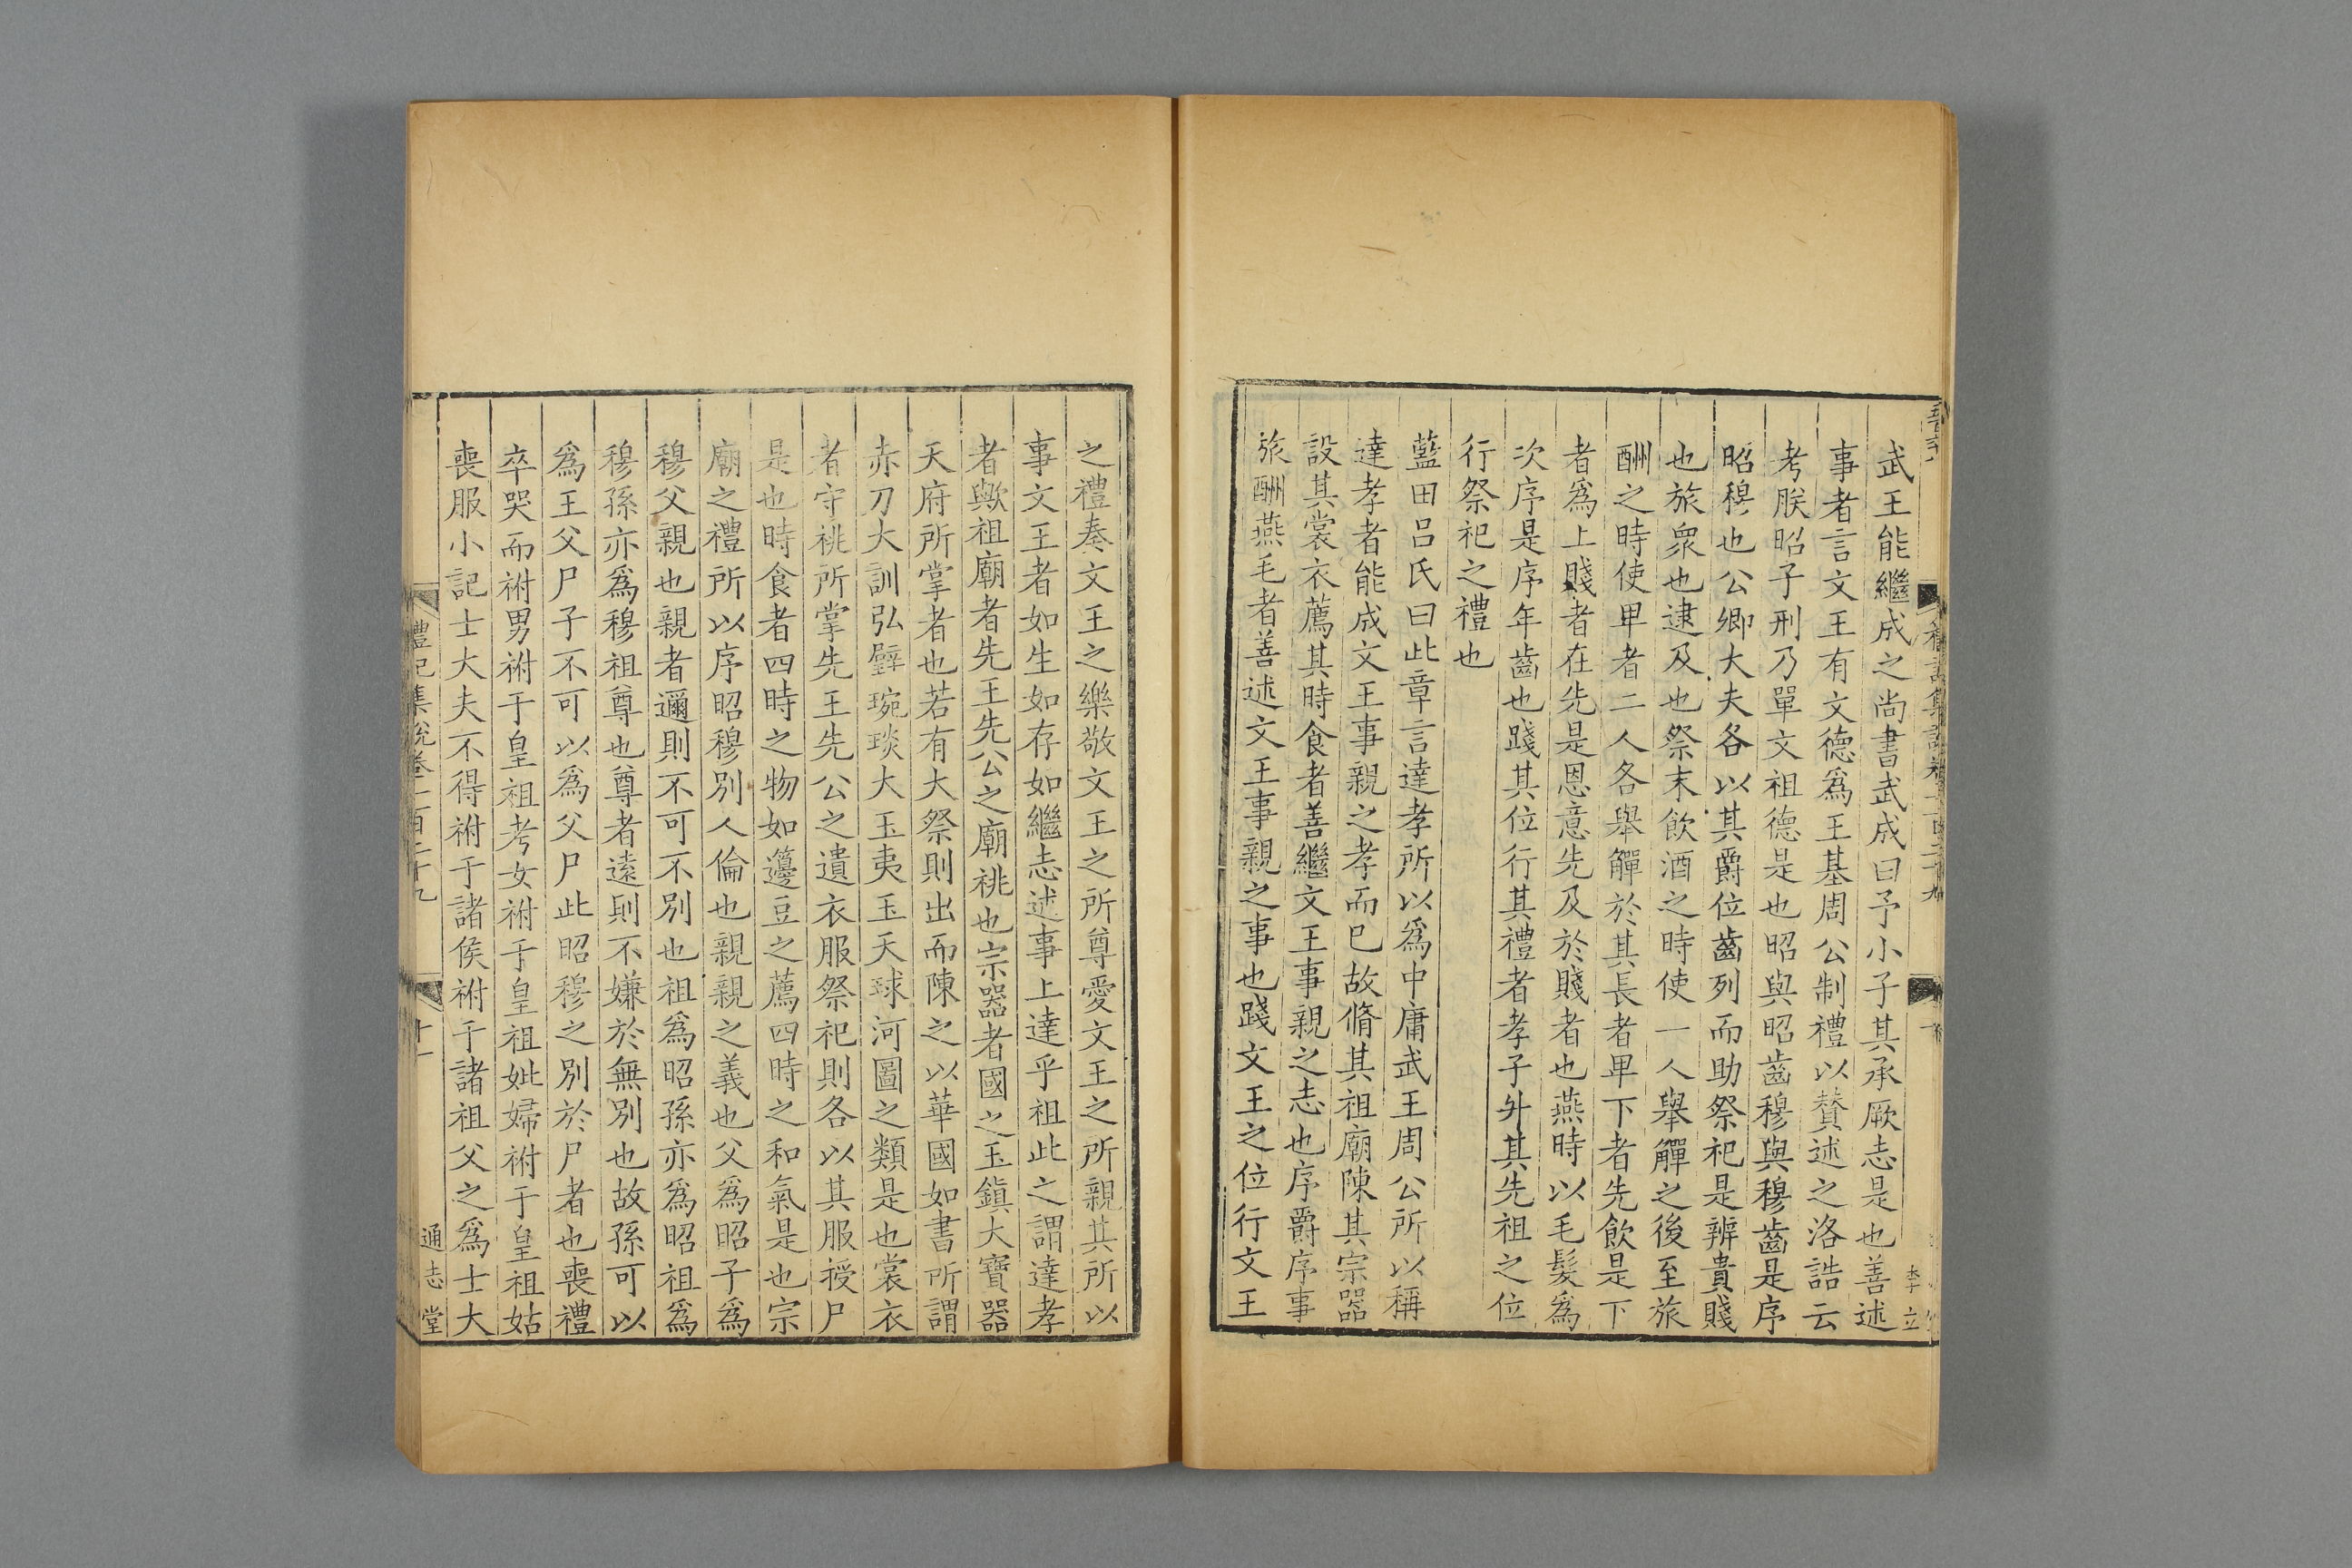 武王能繼成之尚書武成曰予小子其承厥志是也善述
事者言文王有文德爲王基周公制禮以贊述之洛誥云
考朕昭子刑乃單文祖德是也昭與昭齒穆與穆齒是序
昭穆也公卿大夫各以其爵位齒列而助祭祀是辨貴賤
也旅衆也逮及也祭末飲酒之時使一人舉觶之後至旅
酬之時使卑者二人各舉觶於其長者卑下者先飲是下
者爲上賤者在先是恩意先及於賤者也燕時以毛髮爲
次序是序年齒也踐其位行其禮者孝子升其先祖之位
行祭祀之禮也
藍田呂氏曰此章言達孝所以爲中庸武王周公所以稱
達孝者能成文王事親之孝而已故脩其祖廟陳其宗器
設其裳衣薦其時食者善繼文王事親之志也序爵序事
旅酬燕毛者善述文王事親之事也踐文王之位行文王
之禮奏文王之樂敬文王之所尊愛文王之所親其所以
事文王者如生如存如繼志述事上達乎祖此之謂達孝
者歟祖廟者先王先公之廟祧也宗器者國之玉鎮大寶器
天府所掌者也若有大祭則出而陳之以華國如書所謂
赤刀大訓弘璧琬琰大玉夷玉天球河圖之類是也裳衣
者守祧所掌先王先公之遺衣服祭祀則各以其服授尸
是也時食者四時之物如籩豆之薦四時之和氣是也宗
廟之禮所以序昭穆別人倫也親親之義也父爲昭子爲
穆父親也親者邇則不可不別也祖爲昭孫亦爲昭祖爲
穆孫亦爲穆祖尊也尊者遠則不嫌於無別也故孫可以
爲王父尸子不可以爲父尸此昭穆之別於尸者也喪禮
卒哭而祔男祔于皇祖考女祔于皇祖妣婦祔于皇祖姑
喪服小記士大夫不得祔于諸侯祔于諸祖父之爲士大
禮記集說卷一百二十九 十一 通志堂